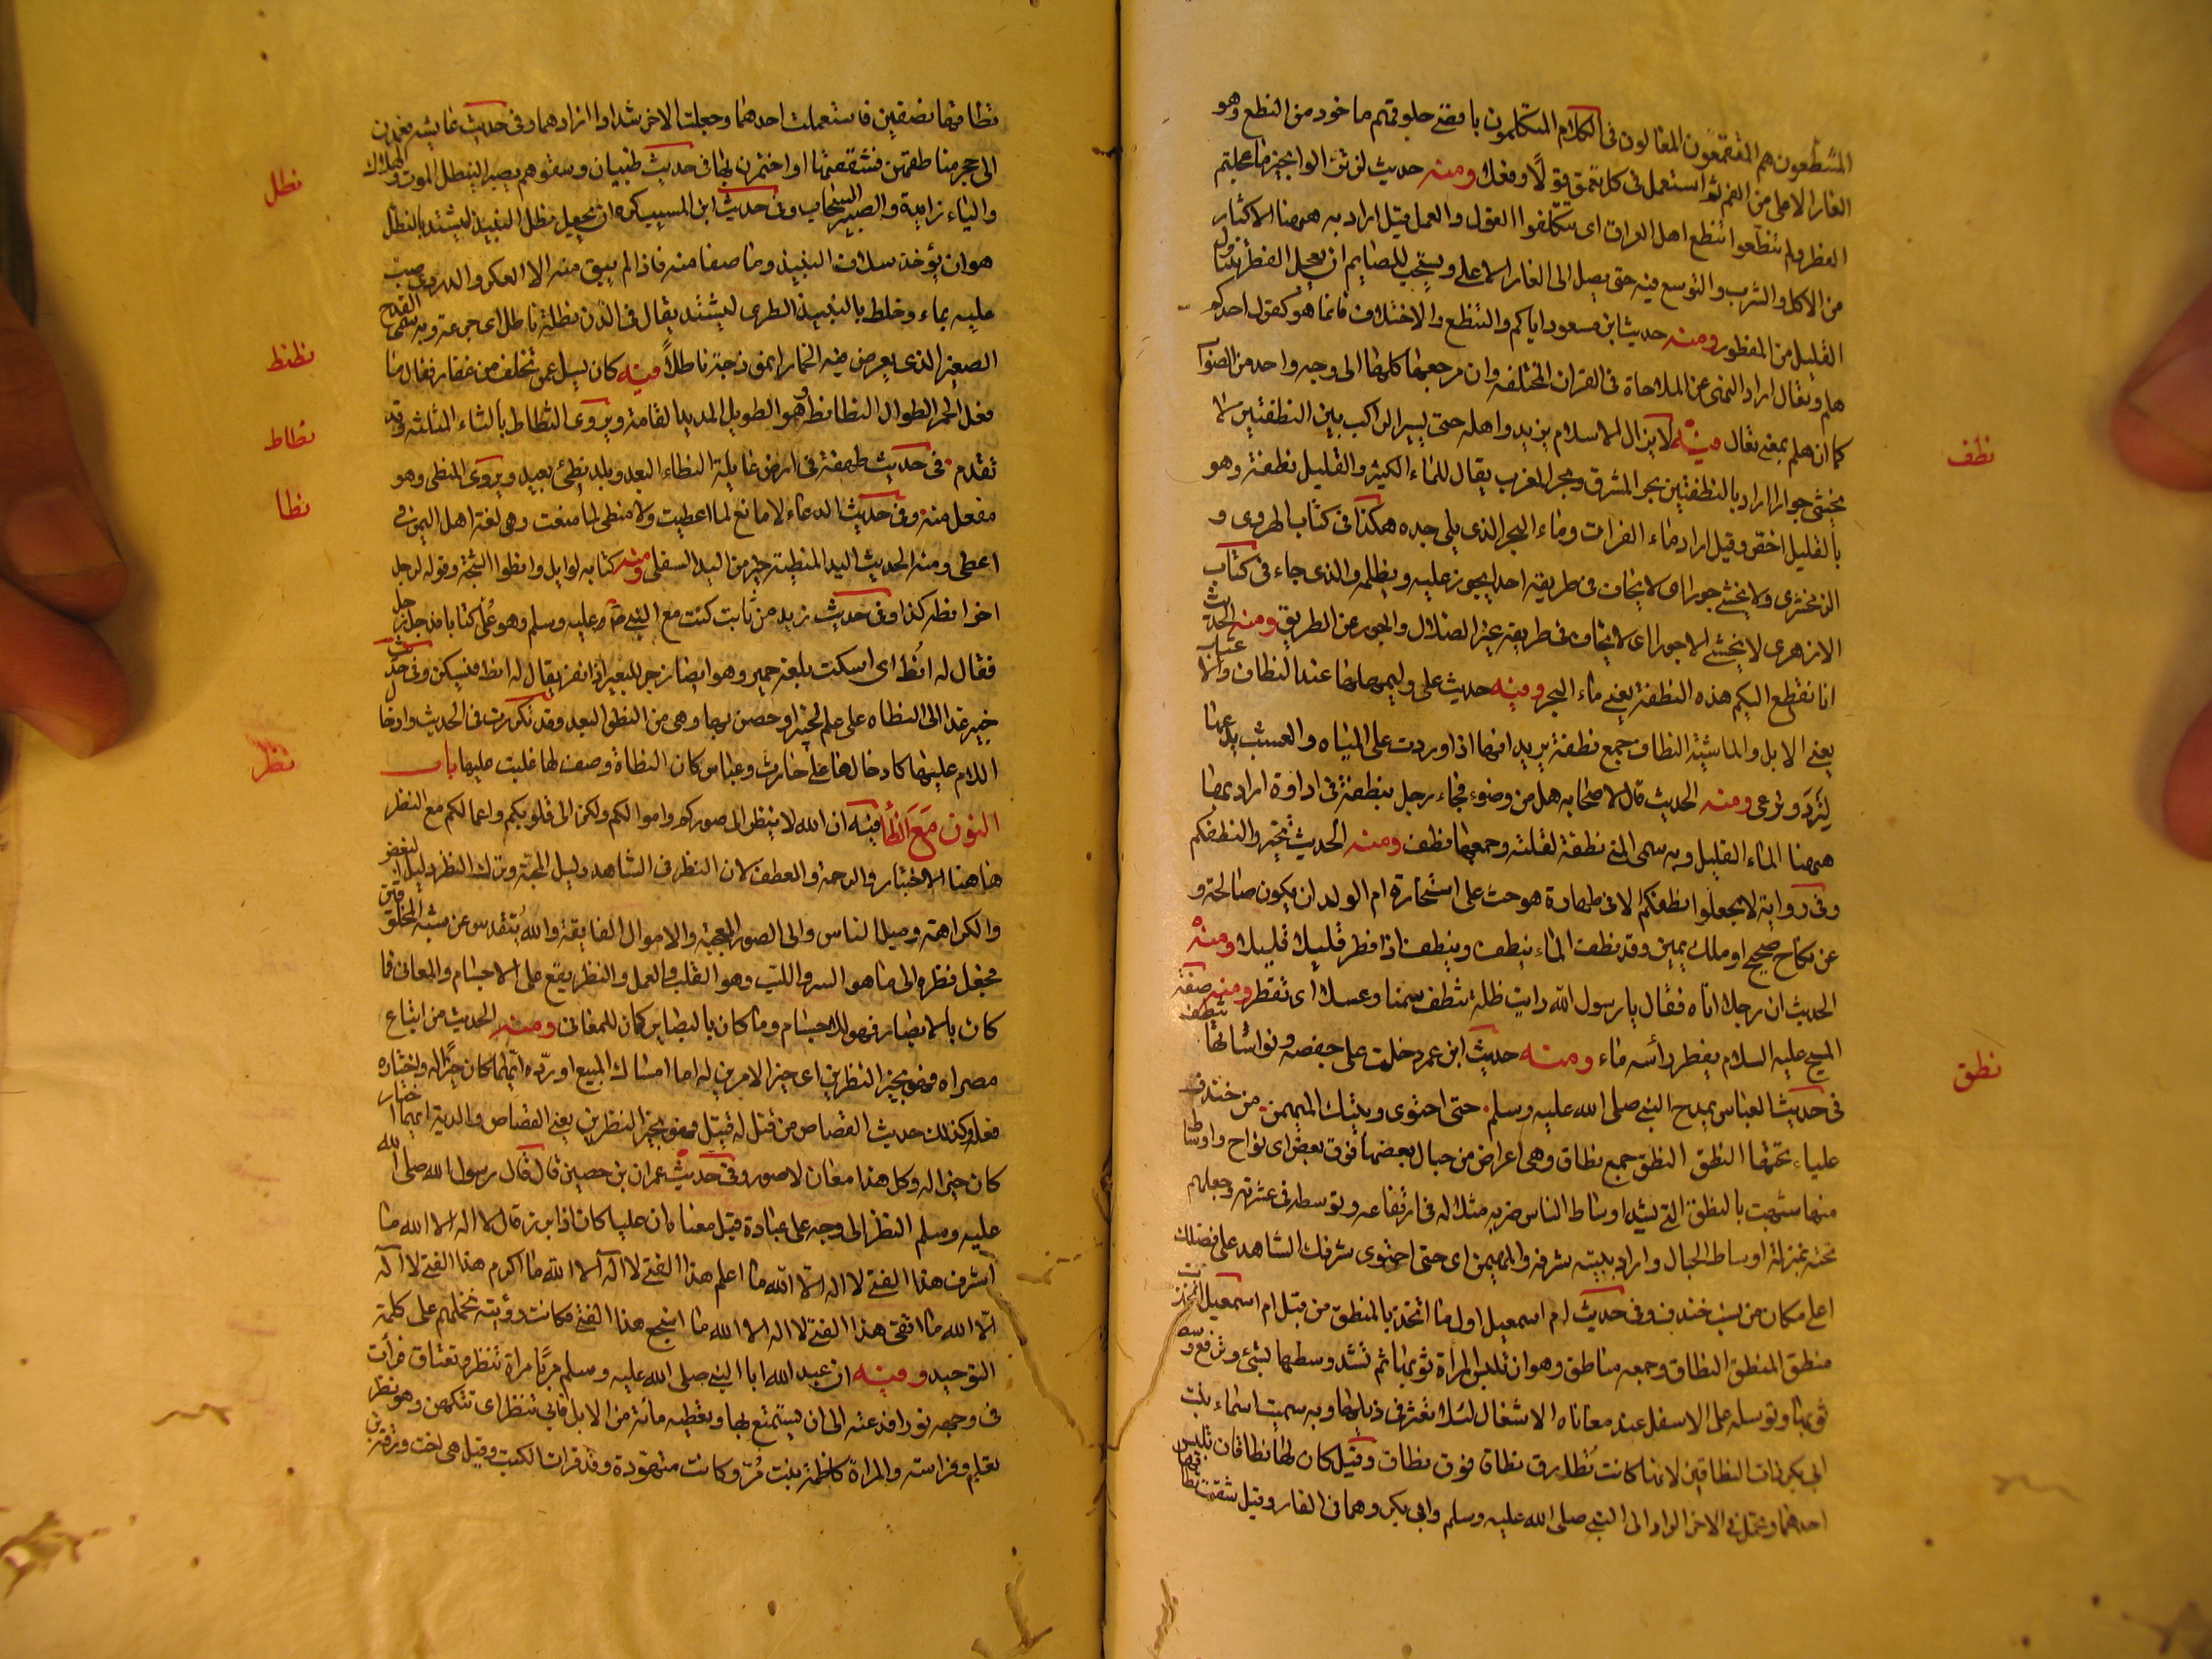 المتنطعون هم المتعمقون المغالون فى الكلام المتكلمون باقصى حلوقهم ماخوذ من النطع وهو
الغار الاعلى من الفم ثم استعمل فى كل تعمق قولا وفعلا ومنه حديث لن تزالوا بخير ما عجلتم
الفطر ولم تنطعوا تنطع اهل العراق اى تتكلفوا القول والعمل قيل اراد به ههنا الاكثار
من الاكل والشرب والتوسع فيه حتى يصل الى الغار الاعلى ويستحب للصايم ان يعجل الفطر بتناول
القليل من الفطور ومنه حديث ابن مسعود اياكم والتنطع والاختلاف فانما هو كقول احدكم
هلم وتعال اراد النهى عن الملاحاة فى القران المختلفة وان مرجعها كلها الى وجه واحد من الصواب
كما ان هلم بمعنى تعال فيه لا يزال الاسلام يزيد واهله حتى يسير الراكب بين النطفتين لا
نطف
يخشى جورا اراد بالنطفتين بحر المشرق وبحر المغرب يقال للماء الكثير والقليل نطفة وهو
بالقليل اخص وقيل اراد ماء الفرات وماء البحر الذى يلى جده هكذا فى كتاب الهروى و
الزمخشرى ولا يخشى جورا اى لا يخاف فى طريقه احدا يجوز عليه ويظلمه والذى جاء فى كتاب
الازهرى لا يخشى الا جورا اى لا يخاف فى طريقه غير الضلال والجور عن الطريق ومنه الحديث
انا نقطع اليكم هذه النطفة يعنى ماء البحر ومنه حديث على وليمهلها عند النطاف والاعشاب
يعنى الابل والماشية النطاف جمع نطفة يريد انها اذا وردت على المياه والعشب يدعها
لترد وترعى ومنه الحديث قال لاصحابه هل من وضوء فجاء رجل بنطفة فى اداوة اراد بها
ههنا الماء القليل وبه سمى المنى نطفة لقلته وجمعها نطف ومنه الحديث تخيروا لنطفكم
وفى رواية لا تجعلوا نطفكم الا فى طهارة هو حث على استخارة ام الولد ان يكون صالحة و
عن نكاح صحيح او ملك يمين وقد نطف الماء ينطف وينطف اذا قطر قليلا قليلا ومنه
الحديث ان رجلا اتاه فقال يا رسول الله رايت ظلة تنطف سمنا وعسلا اى تقطر ومنه صفة
المسيح عليه السلام يقطر رأسه ماء ومنه حديث ابن عمر دخلت على حفصة ونواساتها تنطف
نطق
فى حديث العباس يمدح النبى صلى الله عليه وسلم حتى احتوى وبيتك المهيمن من خندف
علياء تحتها النطق النطق جمع نطاق وهى اعراض من جبال بعضها فوق بعض اى نواح واوساط
منها شبهت بالنطق التى يشد اوساط الناس ضربه مثلا له فى ارتفاعه وتوسطه فى عشيرته وجعلهم
تحته بمنزلة اوساط الجبال واراد ببيته شرفه والمهيمن اى حتى احتوى شرفك الشاهد على فضلك
اعلى مكان من نسب خندف وفى حديث ام اسمعيل اول ما اتخذت بالمنطق من قبل ام اسمعيل اتخذت
منطق المنطق النطاق وجمعه مناطق وهو ان تلبس المرأة ثوبها ثم تشد وسطها بشئ وترفع وسط
ثوبها وترسله على الاسفل عند معاناه الاشغال لئلا تعثر فى ذيلها وبه سميت اسماء بنت
ابى بكر ذات النطاقين لانها كانت تطارق نطاقا فوق نطاق وقيل كان لها نطاقان تلبس
احدهما وتحمل فى الاخر الزاد الى النبى صلى الله عليه وسلم وابى بكر وهما فى الغار وقيل شقت نطاقها
نطاقها نصفين فاستعملت احدهما وجعلت الاخر شدادا لزادهما وفى حديث عايشه فعمدن
الى حجز مناطقهن فشققنها او اختمرن بها فى حديث ظبيان وسقوهم بصبير النيطل الموت والهلاك
نطل
والياء زايدة والصبير السحاب وفى حديث ابن المسيب كره ان يجعل نطل النبيذ ليشتد بالنطل
هو ان يؤخذ سلاف النبيذ وما صفا منه فاذا لم يبق منه الا العكر والدردى صب
عليه بماء وخلط بالنبيذ الطرى ليشتد يقال فى الدن نطلة ناطل اى جرعة وبه سمى القدح
الصغير الذى يعرض فيه الخمار انموذجة ناطلا فيه كان يسل عمن تخلف من غفار فقال ما
نطنط
فعل الحمر الطوال النطانط هو الطويل المديد القامة ويروى الثطاط بالثاء المثلثة وقد
نطاط
تقدم فى حديث طهفة فى ارض غايلة النطاء البعد وبلد نطئ بعيد ويروى المنطى وهو
مفعل منه وفى حديث الدعاء لا مانع لما اعطيت ولا منطى لما منعت وهى لغة اهل اليمن فى
نطا
اعطى ومنه الحديث اليد المنطية خير من اليد السفلى ومنه كتابه لوايل وانطوا الثبجة وقوله لرجل
اخر انطه كذا وفى حديث زيد بن ثابت كنت مع النبى صلى الله عليه وسلم وهو يملى كتابا فدخل رجل
فقال له انط اى اسكت بلغة حمير وهو ايضا زجر للبعير اذا نفر يقال له انط فيسكن وفى حديث
خيبر غدا الى النطاه على علم لخيبر او حصن بها وهى من النطو البعد وقد تكررت فى الحديث وادخال
اللام عليها كادخالها على حارث وعباس كان النطاة وصف لها غلبت عليها باب
النون مع الظاء فيه ان الله لا ينظر الى صوركم واموالكم ولكن الى قلوبكم واعمالكم مع النظر
نظر
هاهنا الاختيار والرحمة والعطف لان النظر فى الشاهد دليل المحبة وترك النظر دليل البغض
والكراهة وميل الناس والى الصور المعجبة والاموال الفايقة والله يتقدس عن شبه المخلوقين
فجعل نظره الى ما هو السر واللب وهو القلب والعمل والنظر يقع على الاجسام والمعانى فما
كان بالابصار فهو للاجسام وما كان بالبصاير كان للمعانى ومنه الحديث من ابتاع
مصراه فهو بخير النظرين اى خير الامرين له اما امساك المبيع او رده ايهما كان خيرا له واختاره
فعله وكذلك حديث القصاص من قتل له قتيل فهو بخير النظرين يعنى القصاص والدية ايهما اختار
كان خيرا له وكل هذا معان لا صور وفى حديث عمران بن حصين قال قال رسول الله صلى الله
عليه وسلم النظر الى وجه على عبادة قيل معناه ان عليا كان اذا برز قال لا اله الا الله ما
اشرف هذا الفتى لا اله الا الله ما اعلم هذا الفتى لا اله الا الله ما اكرم هذا الفتى لا اله
الا الله ما اتقى هذا الفتى لا اله الا الله ما اشجع هذا الفتى فكانت رؤيته تحملهم على كلمة
التوحيد وفيه ان عبد الله ابا النبى صلى الله عليه وسلم مر بامراة تنظر وتعتاف فرأت
فى وجهه نورا فدعته الى ان يستمتع بها وتعطيه مائة من الابل فابى تنظر اى تتكهن وهو نظر
تعلم وفراسة والمراة كاظمة بنت مر وكانت متهودة وقد قرات الكتب وقيل هى اخت ورقة بن